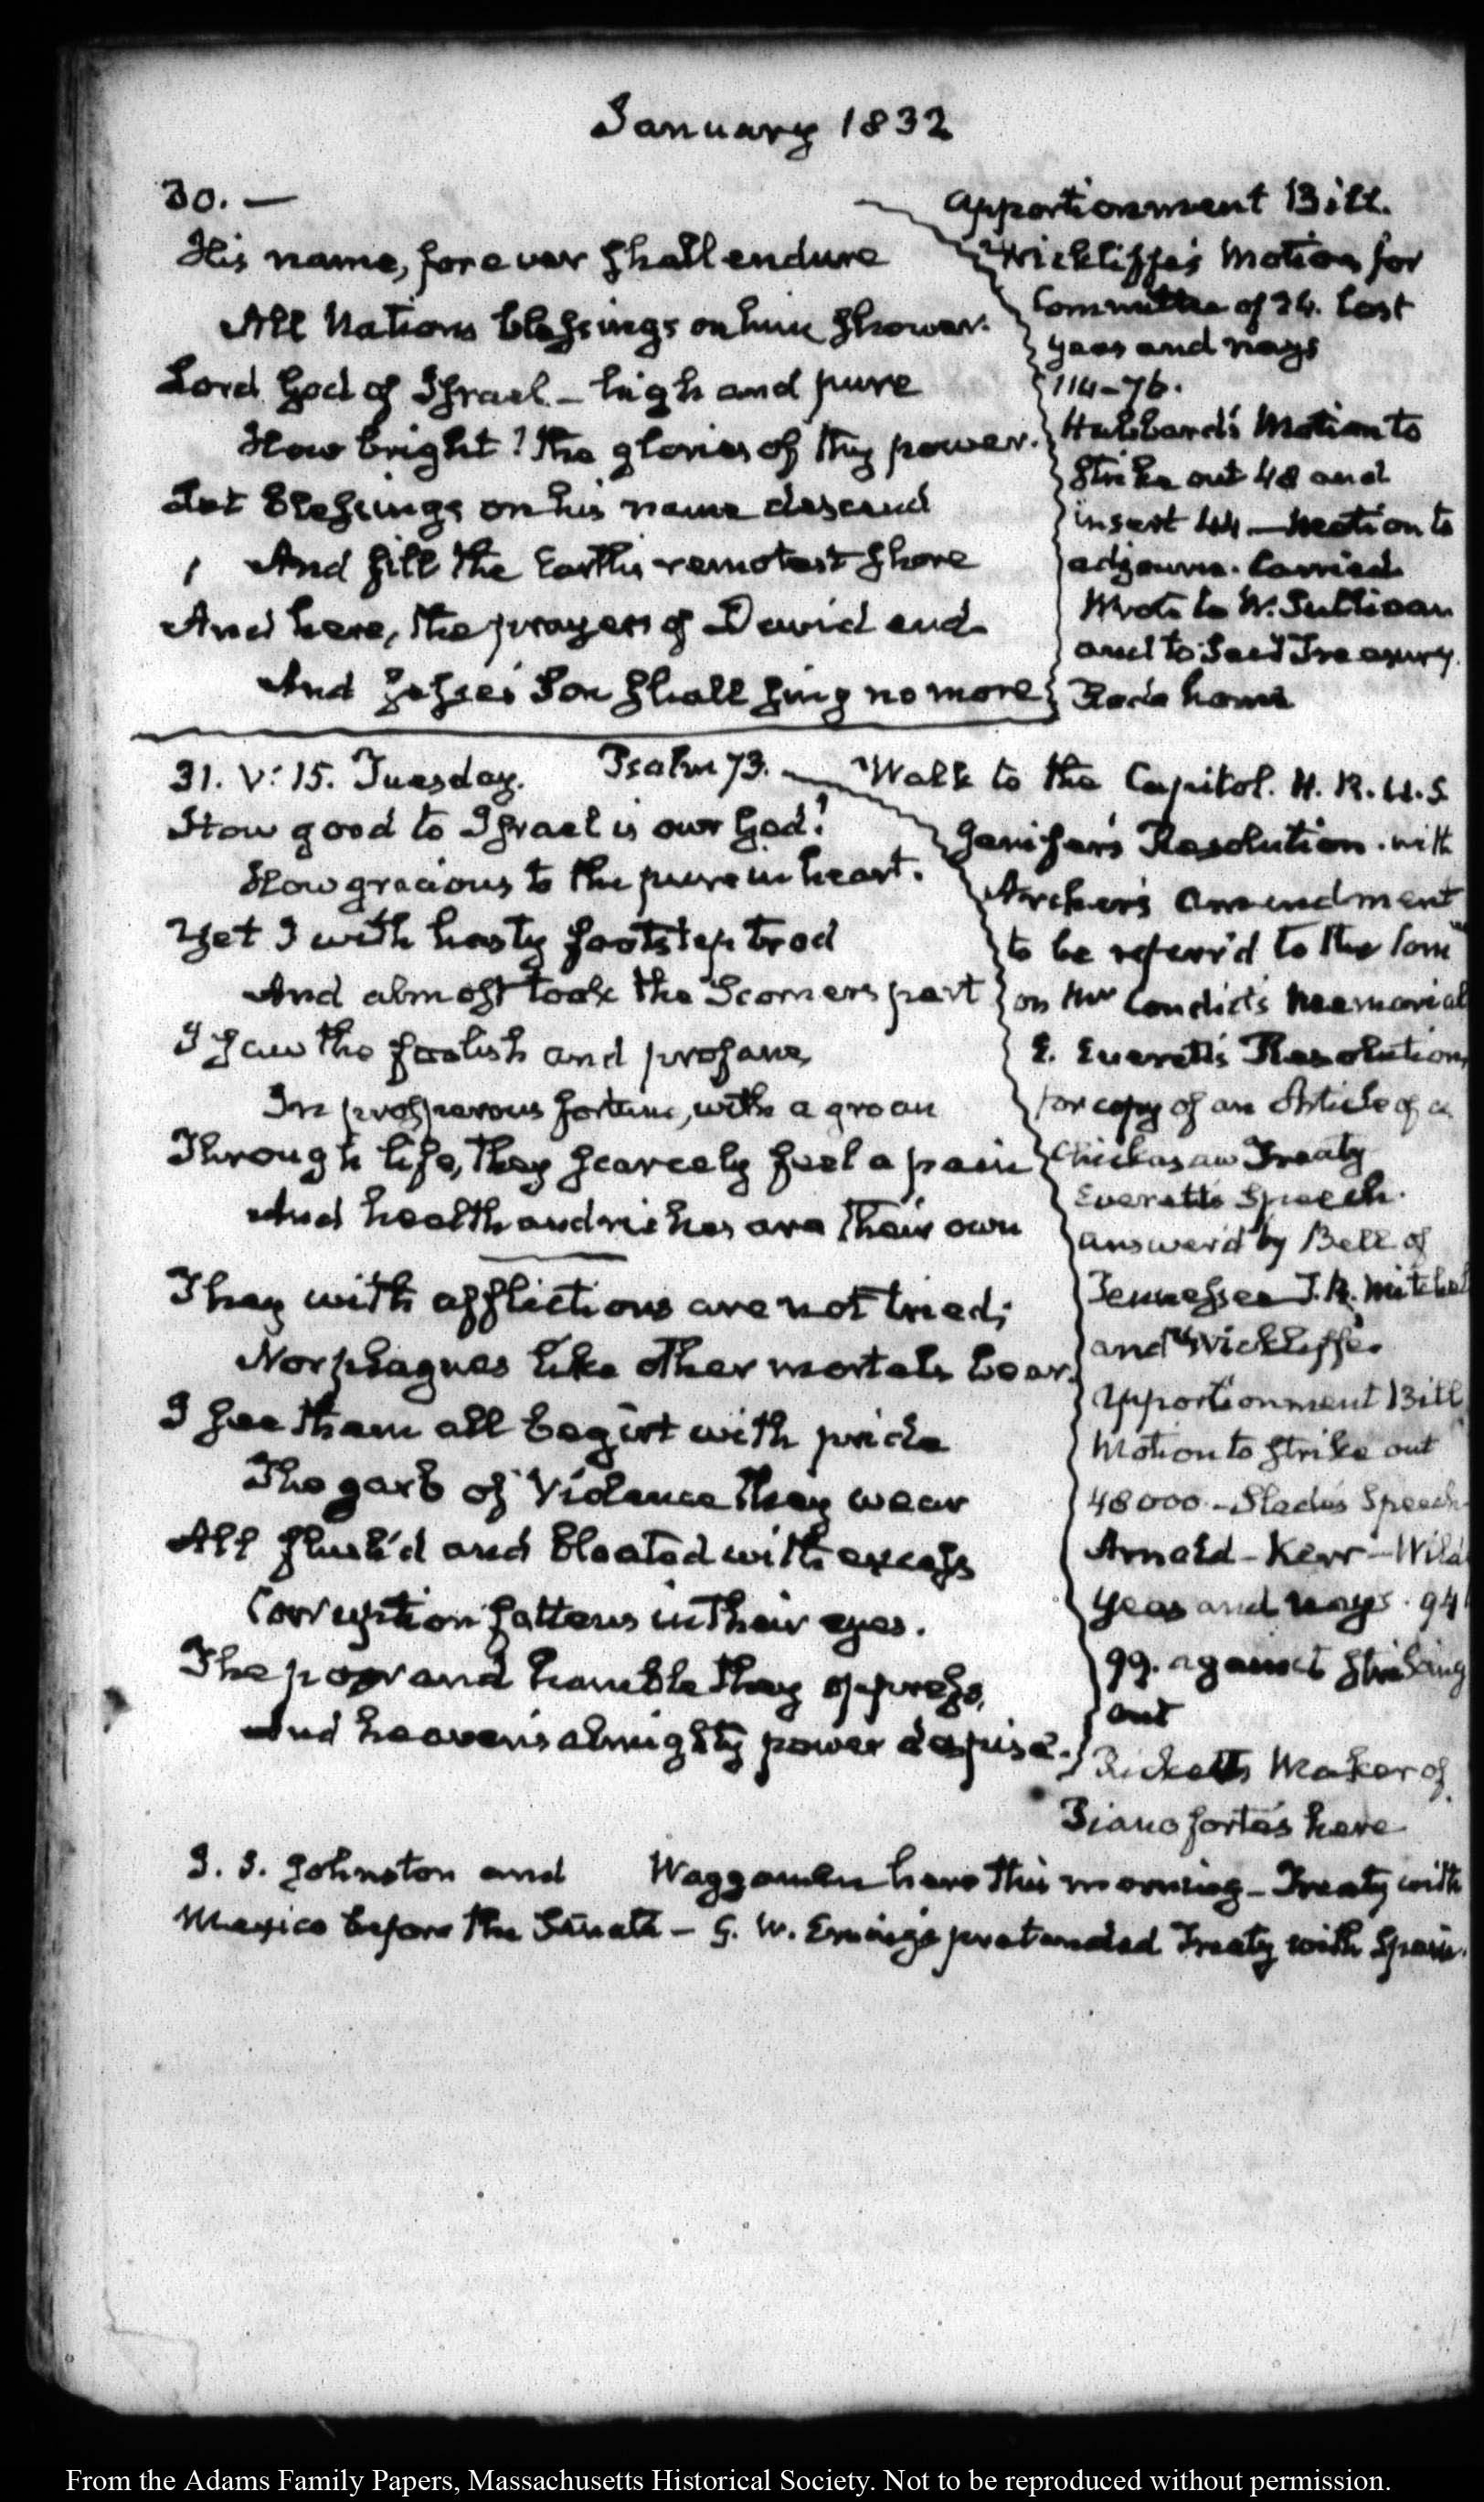 January 1832
30. —
His name, forever shall endure
All Nations blessings on him shower.
Lord God of Israel – high and pure
How bright! the glories of thy power.
Let Blessings on his name descend
And fill the Earth's remotest shore
And here, the prayers of David end.
And Jesse's Son shall sing no more
Apportionment Bill.
Wickliffe's Motion for
Committee of 24. lost
yeas and nays
114–76.
Hubbard's Motion to
strike out 48 and
insert 44 — Motion to
adjourn. Carried.
Wrote to W. Sullivan
and to Treasury.
Rode home
31. V: 15. Tuesday. Psalm 73. — Walk to the Capitol. H. R. U. S
How good to Israel is our God!
How gracious to the pure in heart.
Yet I with hasty footstep trod
And almost took the Scorners part
I saw the foolish and profane,
In prosperous fortune, with a groan
Through life, they scarcely feel a pain
And health and riches are their own
They with afflictions are not tried;
Nor plagues like other mortals bear.
I see them all begirt with pride
The garb of Violence they wear
All flush'd and bloated with excess
Corruption fattens in their eyes.
The poor and humble they oppress,
And heaven's almighty power despise.
Jenifer's Resolution. with
Archer's amendment
to be referr'd to the Com
on Mr Condict's Memorial
E. Everett's Resolution,
for copy of an Article of a
Chickasaw Treaty
Everett's Speech.
answer'd by Bell of
Tennessee J. R. Mitchel
and Wickliffe.
Apportionment Bill
Motion to strike out
48000. – Slade's Speech
Arnold – Kerr – Wild
yeas and nays. 94
99. against striking
out
Ricketts Maker of
Piano forte's here
J. S. Johnston and Waggaman here this morning – Treaty with
Mexico before the Senate – G. W. Erving's pretended Treaty with Spain.
From the Adams Family Papers, Massachusetts Historical Society. Not to be reproduced without permission.